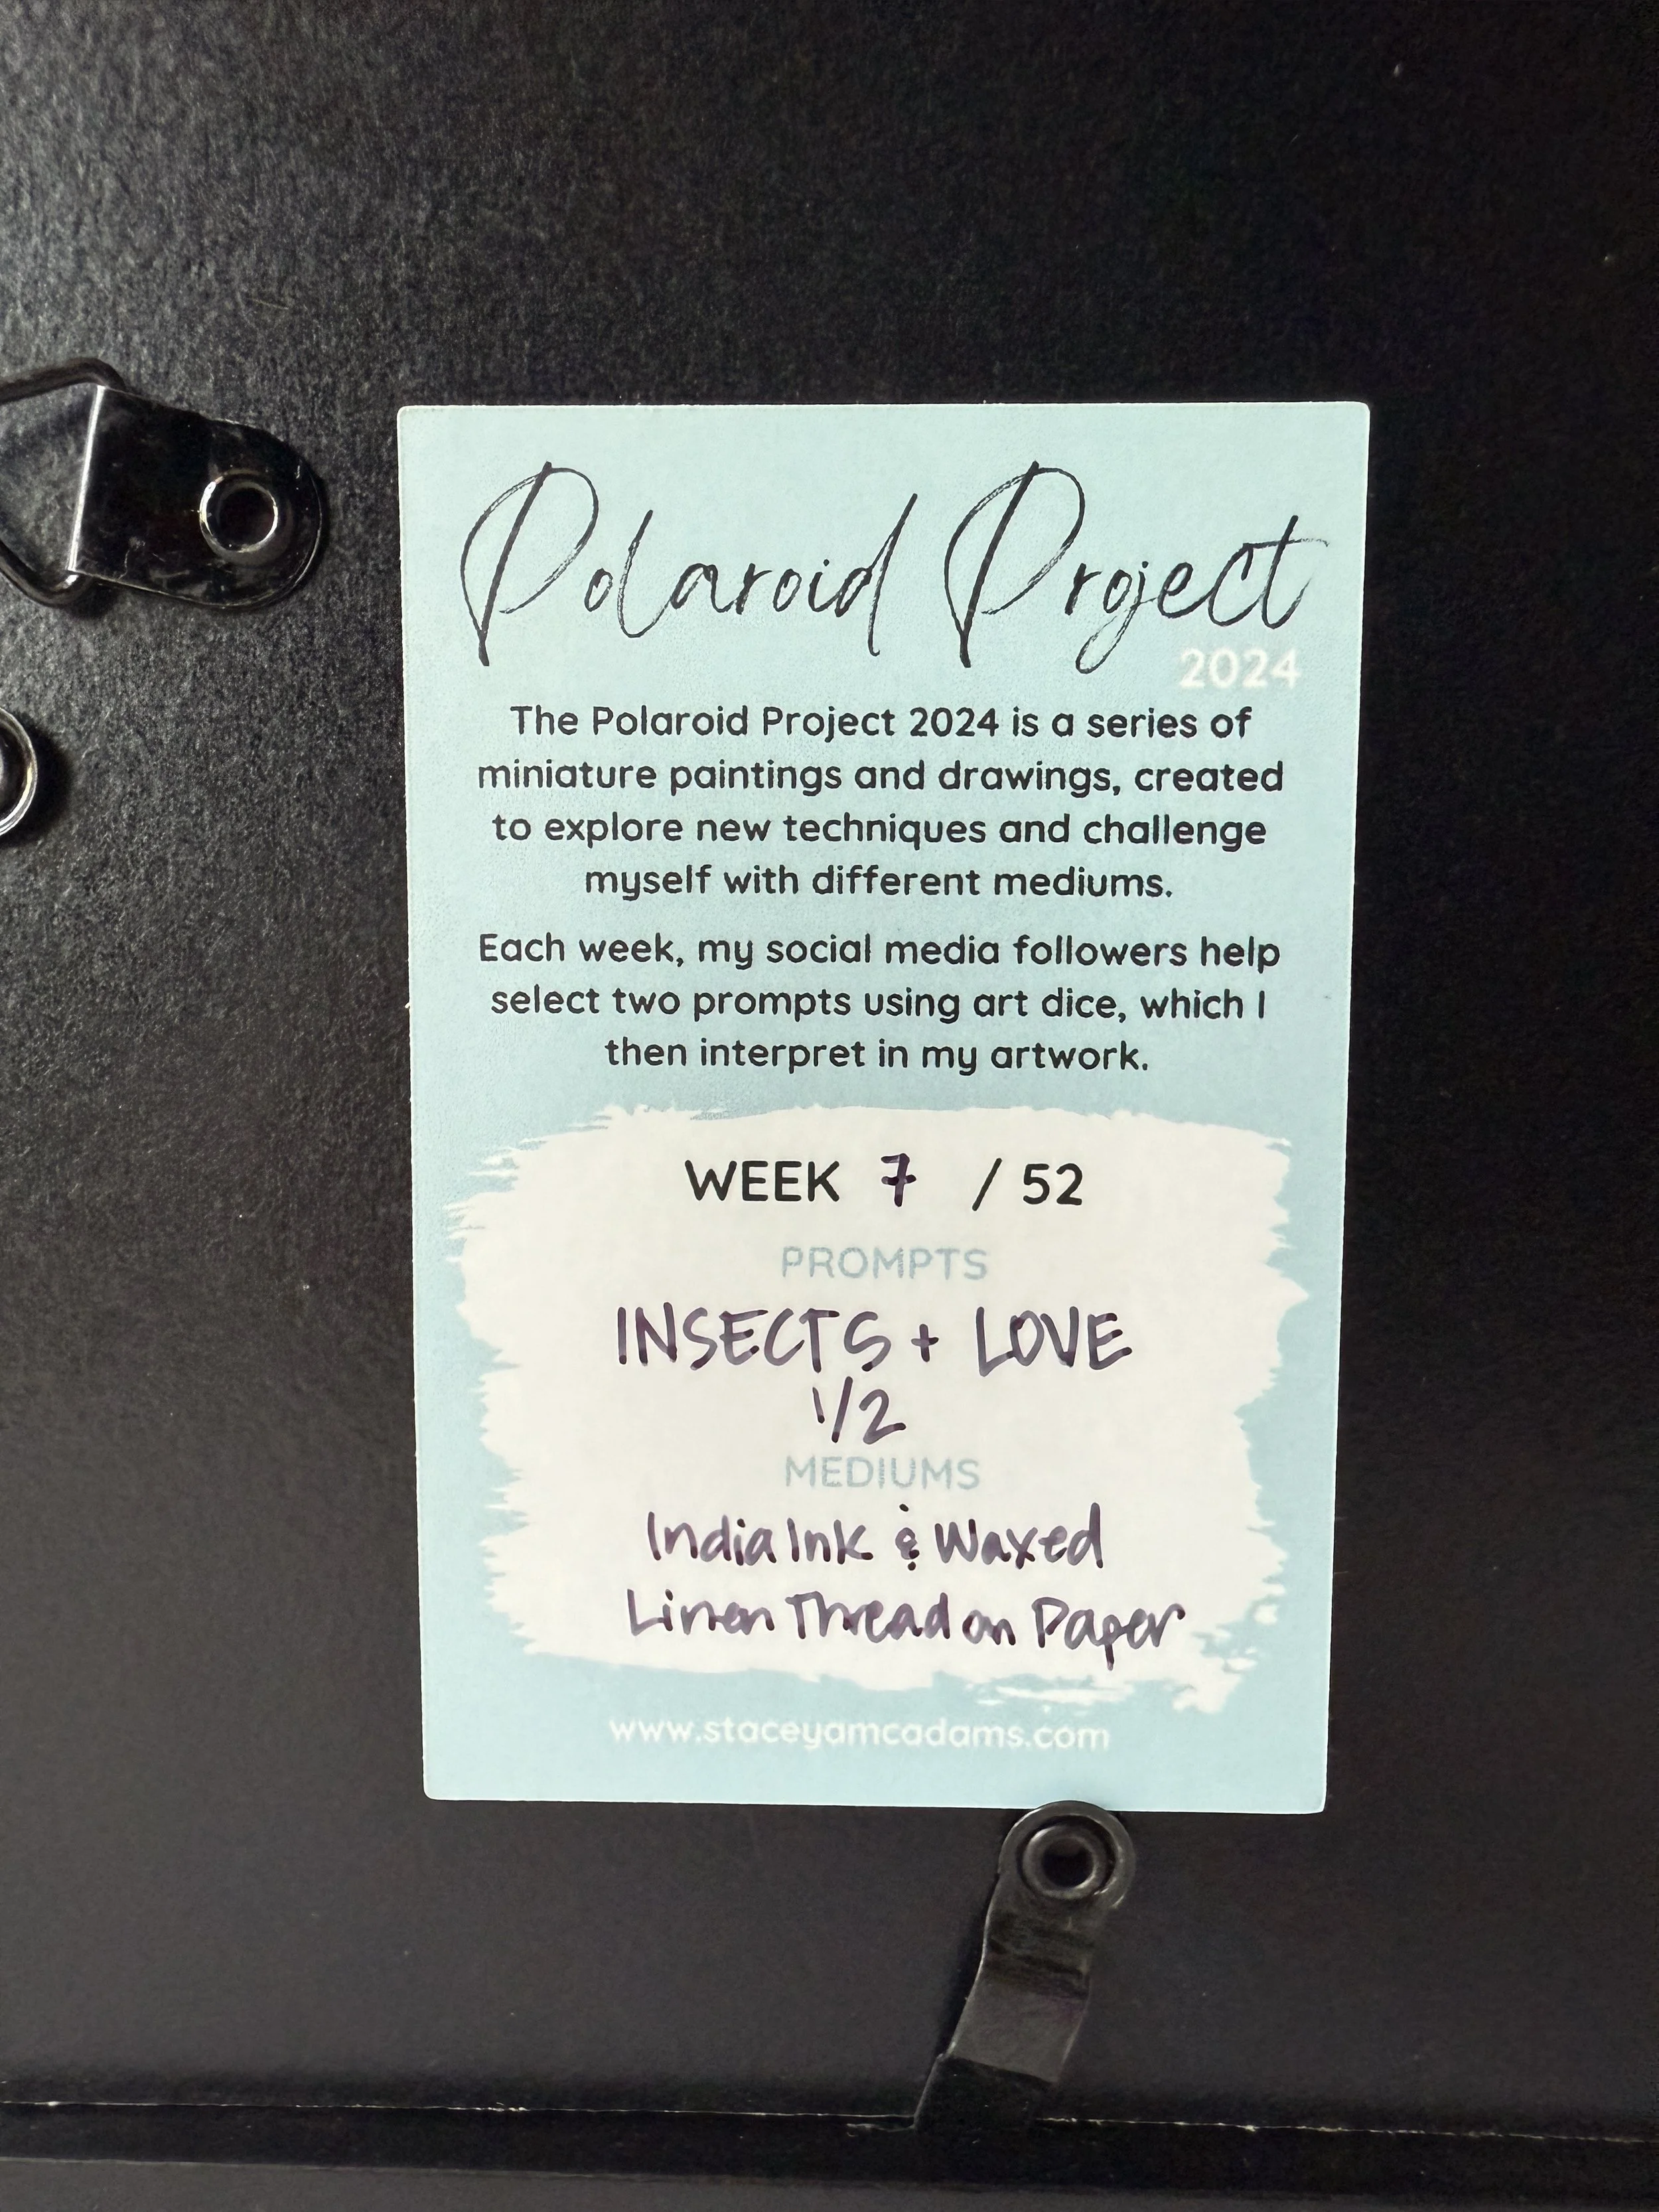 Polaroid Project
2024
The Polaroid Project 2024 is a series of
miniature paintings and drawings, created
to explore new techniques and challenge
myself with different mediums.
Each week, my social media followers help
select two prompts using art dice, which I
then interpret in my artwork.
WEEK 7 / 52
PROMPTS
INSECTS + LOVE
1/2
MEDIUMS
India Ink & Waxed
Linen Thread on Paper
www.staceyamcadams.com